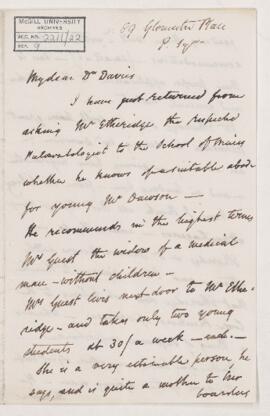 McGILL UNIVERSITY
ARCHIVES
ACC. NO. 2211/22
REF. 9
69 Gloucester Place
P. Sqre
My dear Dr Davies
I have just returned from
asking Mr Etheridge the respected
Palaeontologist to the School of Mines
whether he knows of a suitable abode
for young Mr Dawson —
He recommends in the highest terms
Mrs Guest the widow of a medical
man – without children –
Mrs Guest lives next door to Mr Ethe-
ridge – and takes only two young
students at 30/ a week – each –
She is a very estimable person he
says, and is quite a mother to her
boarders